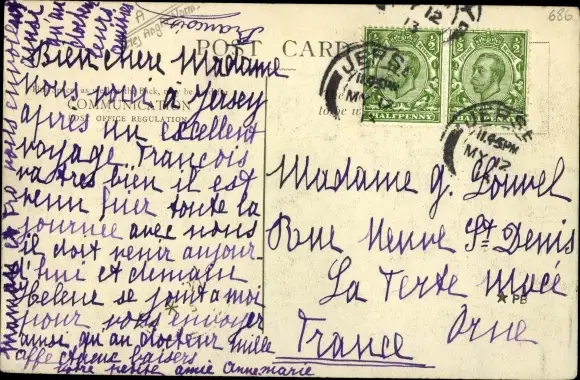 François
686
POST CARD
COMMUNICATION
POST OFFICE REGULATION
JERSEY
11.45PM
MY 12
12
13
JERSE
11.45PM
MY 12
HALFPENNY
HALFPENNY
Bien chère Madame
nous voici à Jersey
après un excellent
voyage François
va très bien il est
venu hier toute la
journée avec nous
il doit venir aujour-
d'hui et demain
Helene se joint a moi
pour vous envoyer
ainsi qu'au docteur mille
affectueux baisers
votre petite amie Annemarie
maman et
Madame G. Louvel
Rue Neuve St Denis
La Ferté Macé
Orne
France
PB